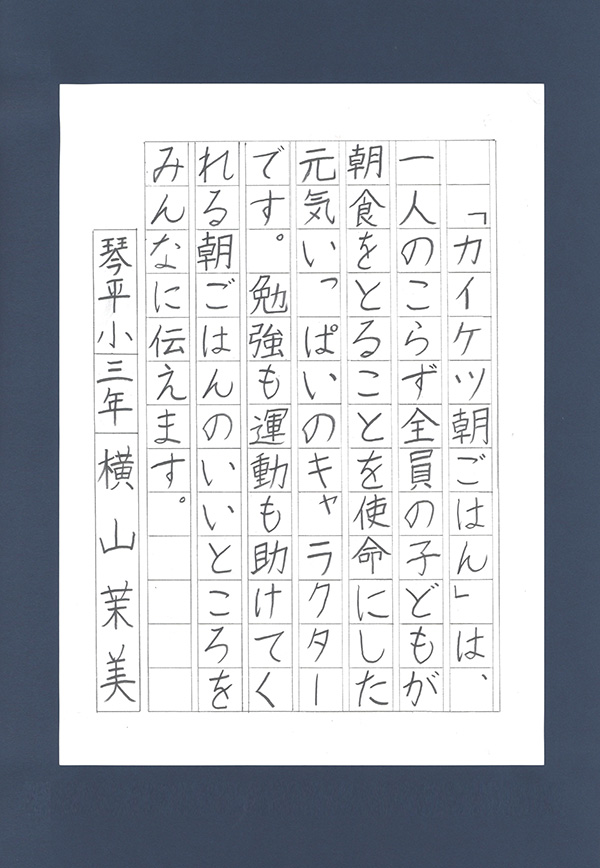 「カイケツ朝ごはん」は、
一人のこらず全員の子どもが
朝食をとることを使命にした
元気いっぱいのキャラクター
です。勉強も運動も助けてく
れる朝ごはんのいいところを
みんなに伝えます。
琴平小三年 横山茉美